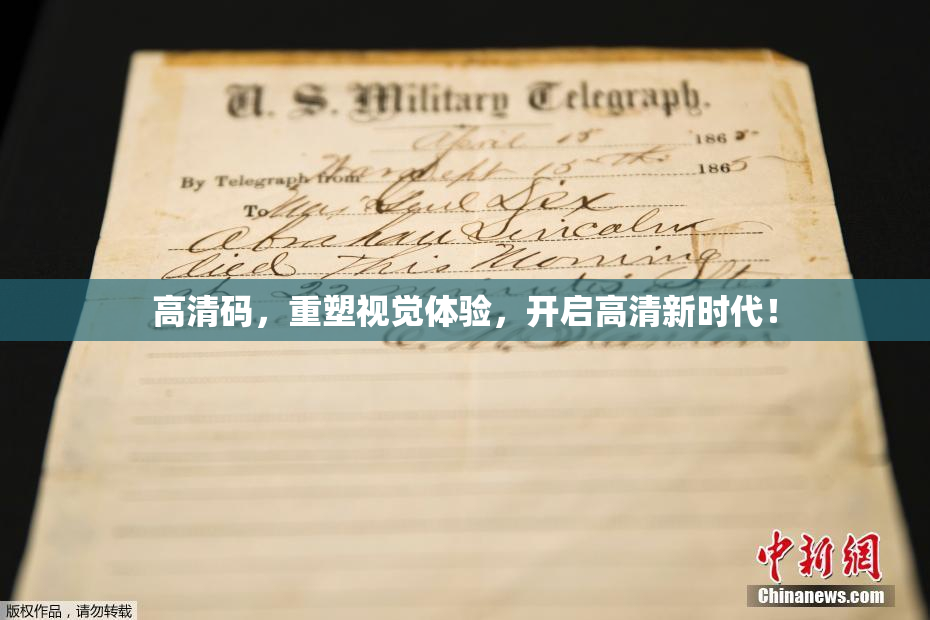 U. S. Military Telegraph.
April 15 1865
By Telegraph from War Dept 15th 1865
To Maj Genl Dix
Abraham Lincoln
died This Morning
at 22 minutes after
高清码，重塑视觉体验，开启高清新时代！
E. M. Stanton
中新网
Chinanews.com
版权作品，请勿转载